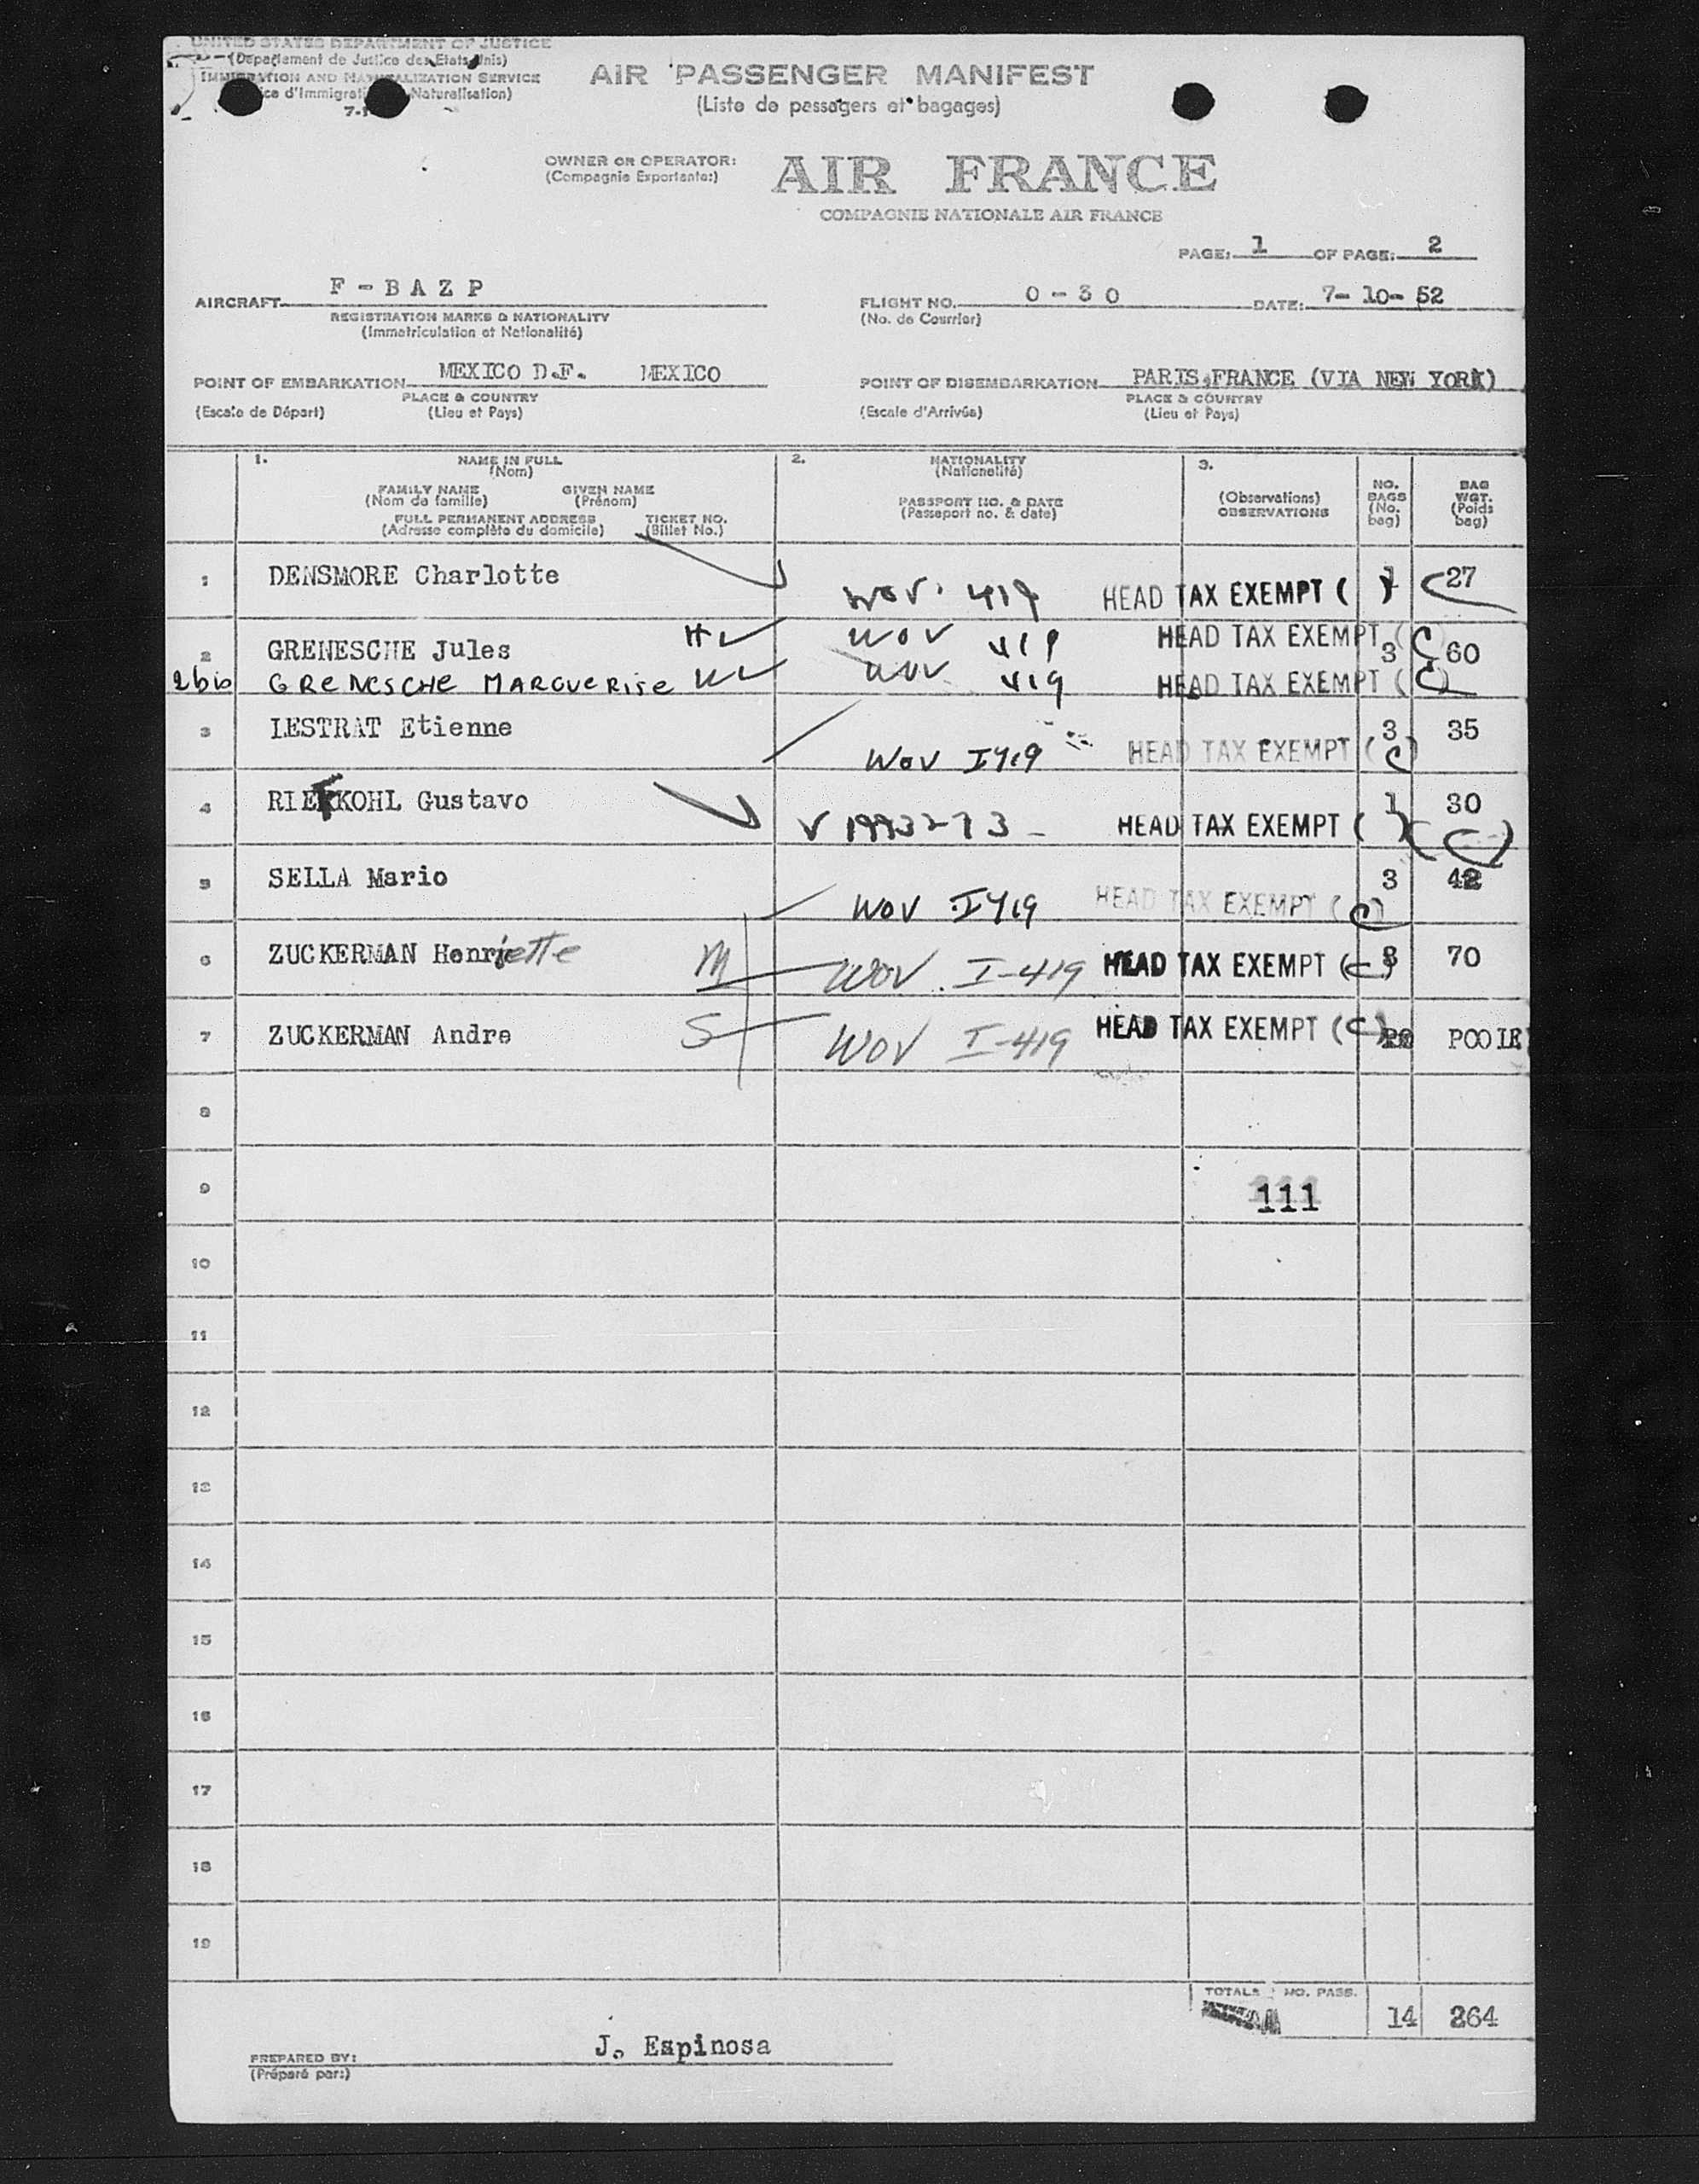 UNITED STATES DEPARTMENT OF JUSTICE
(Departement de Justice des Etats Unis)
IMMIGRATION AND NATURALIZATION SERVICE
d'Immigrat Naturalisation)
AIR PASSENGER MANIFEST
(Liste de passagers et bagages)
OWNER OR OPERATOR: AIR FRANCE
(Compagnie Exportante:)
COMPAGNIE NATIONALE AIR FRANCE
PAGE: 1 OF PAGE: 2
AIRCRAFT F - B A Z P FLIGHT NO. 0 - 3 0 DATE: 7- 10- 52
REGISTRATION MARKS & NATIONALITY (No. de Courrier)
(Immatriculation et Nationalité)
POINT OF EMBARKATION MEXICO D.F. MEXICO POINT OF DISEMBARKATION PARIS, FRANCE (VIA NEW YORK)
PLACE & COUNTRY PLACE & COUNTRY
(Escale de Départ) (Lieu et Pays) (Escale d'Arrivée) (Lieu et Pays)
1. NAME IN FULL 2. NATIONALITY 3.
(Nom) (Nationalité)
FAMILY NAME GIVEN NAME NO. BAGS (No. bag) BAG WGT. (Poids bag)
(Nom de famille) (Prénom) PASSPORT NO. & DATE (Observations)
FULL PERMANENT ADDRESS TICKET NO. (Passeport no. & date) OBSERVATIONS
(Adresse complète du domicile) (Billet No.)
1 DENSMORE Charlotte WOV. 419 HEAD TAX EXEMPT ( ) 1 27
2 GRENESCHE Jules WOV 419 HEAD TAX EXEMPT (C) 3 60
2bis GRENESCHE MARGUERISE WOV 419 HEAD TAX EXEMPT (C)
3 LESTRAT Etienne WOV I419 HEAD TAX EXEMPT (C) 3 35
4 RIEFKOHL Gustavo V 1993273 HEAD TAX EXEMPT ( ) 1 30
5 SELLA Mario WOV I419 HEAD TAX EXEMPT (C) 3 42
6 ZUCKERMAN Henriette M WOV. I-419 HEAD TAX EXEMPT (C) 3 70
7 ZUCKERMAN Andre S WOV I-419 HEAD TAX EXEMPT (C) POOLE
8
9 111
10
11
12
13
14
15
16
17
18
19
TOTALS NO. PASS. 14 264
PREPARED BY: J. Espinosa
(Préparé par:)